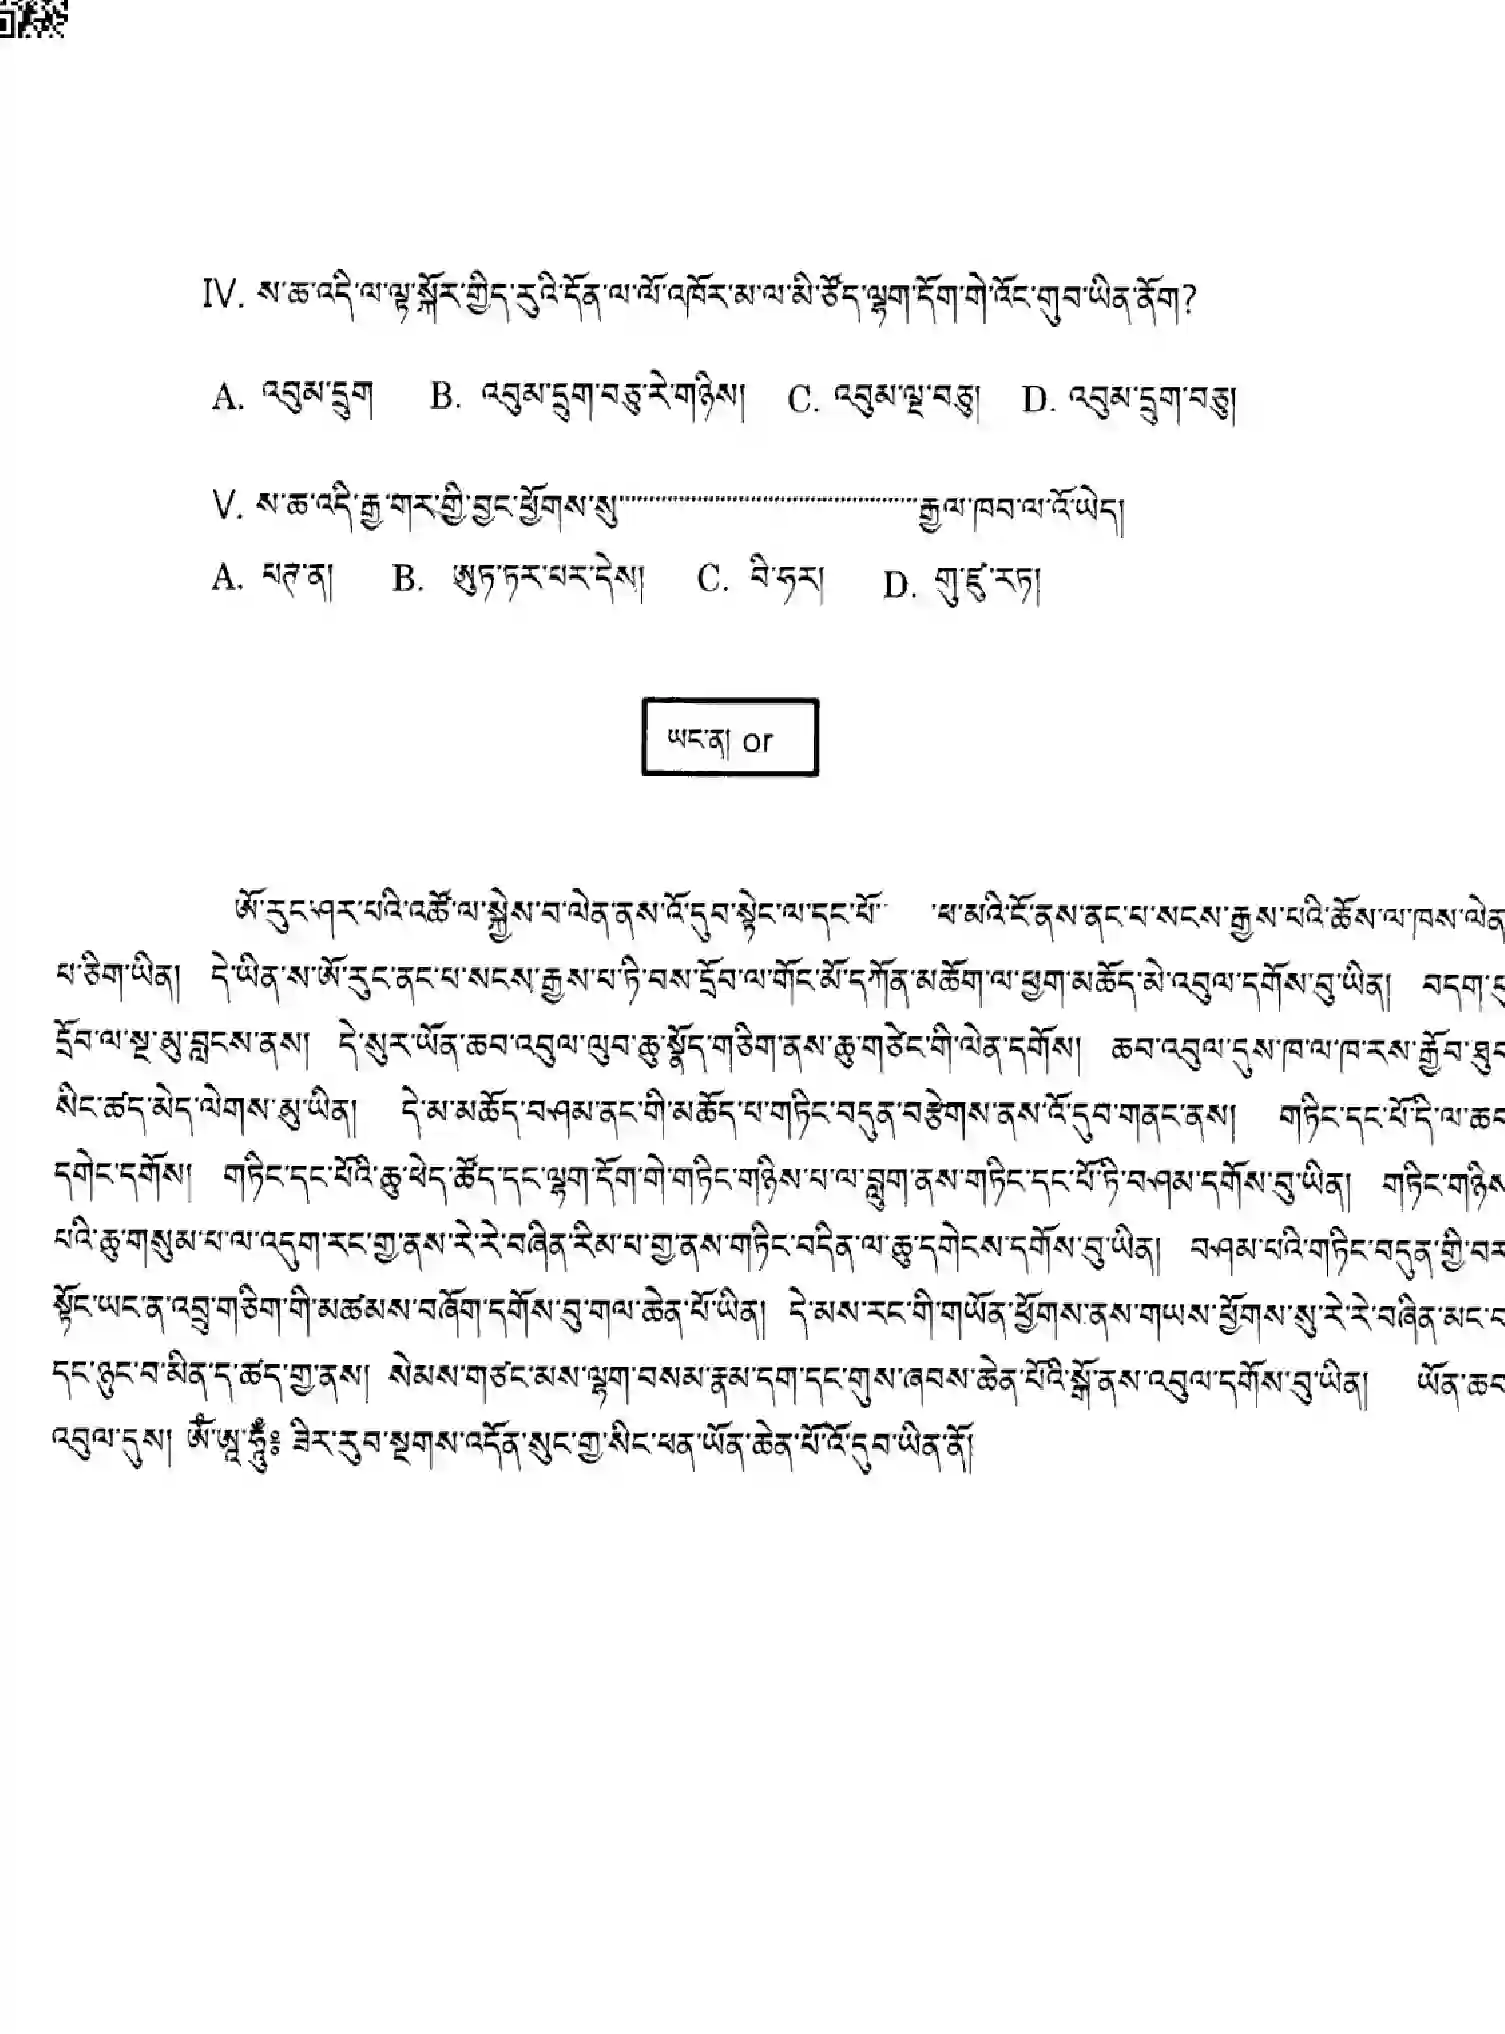 IV. ས་ཆ་འདི་ལ་ལྟ་སྐོར་གྱིད་རུའི་དོན་ལ་ལོ་འཁོར་མ་ལ་མི་ཙོད་ལྷག་དོག་གེ་འོང་གུབ་ཡིན་ནོག?
A. འབུམ་དྲུག B. འབུམ་དྲུག་བཅུ་རེ་གཉིས། C. འབུམ་ལྔ་བཅུ། D. འབུམ་དྲུག་བཅུ།
V. ས་ཆ་འདི་རྒྱ་གར་གྱི་བྱང་ཕྱོགས་སུ་........................................རྒྱལ་ཁབ་ལ་འོ་ཡེད།
A. པཊ་ན། B. ཨུཏ་ཏར་པར་དེས། C. བི་ཧར། D. གུ་ཛུ་རཏ།
ཡང་ན། or
ཨོ་རུང་ཤར་པའི་འཚོ་ལ་སྐྱེས་བ་ལེན་ནས་འོ་དུབ་སྟེང་ལ་དང་པོ་ ཕ་མའི་ངོ་ནས་ནང་པ་སངས་རྒྱས་པའི་ཆོས་ལ་ཁས་ལེན
པ་ཅིག་ཡིན། དེ་ཡིན་ས་ཨོ་རུང་ནང་པ་སངས་རྒྱས་པ་ཏི་བས་དྲོབ་ལ་གོང་མོ་དཀོན་མཆོག་ལ་ཕྱག་མཆོད་མེ་འབུལ་དགོས་བུ་ཡིན། བདག་
དྲོབ་ལ་སྔ་མུ་བླངས་ནས། དེ་སུར་ཡོན་ཆབ་འབུལ་ལུབ་ཆུ་སྣོད་གཅིག་ནས་ཆུ་གཙེང་གི་ལེན་དགོས། ཆབ་འབུལ་དུས་ཁ་ལ་ཁ་རས་རྒྱོབ་
སིང་ཚད་མེད་ལེགས་མུ་ཡིན། དེ་མ་མཆོད་བཤམ་ནང་གི་མཆོད་པ་གཏིང་བདུན་བརྩེགས་ནས་འོ་དུབ་གནང་ནས། གཏིང་དང་པོ་དི་ལ་ཆབ
དགེང་དགོས། གཏིང་དང་པོའི་ཆུ་ཕེད་ཚོད་དང་ལྷག་དོག་གེ་གཏིང་གཉིས་པ་ལ་བླུག་ནས་གཏིང་དང་པོ་ཏི་བཤམ་དགོས་བུ་ཡིན། གཏིང་གཉིས
པའི་ཆུ་གསུམ་པ་ལ་འདུག་རང་གྱ་ནས་རེ་རེ་བཞིན་རིམ་པ་གྱ་ནས་གཏིང་བདིན་ལ་ཆུ་དགེངས་དགོས་བུ་ཡིན། བཤམ་པའི་གཏིང་བདུན་གྱི་བར
སྟོང་ཡང་ན་འབྲུ་གཅིག་གི་མཚམས་བཞོག་དགོས་བུ་གལ་ཆེན་པོ་ཡིན། དེ་མས་རང་གི་གཡོན་ཕྱོགས་ནས་གཡས་ཕྱོགས་སུ་རེ་རེ་བཞིན་མང་བ
དང་ཉུང་བ་མིན་ད་ཚད་གྱ་ནས། སེམས་གཙང་མས་ལྷག་བསམ་རྣམ་དག་དང་གུས་ཞབས་ཆེན་པོའི་སྒོ་ནས་འབུལ་དགོས་བུ་ཡིན། ཡོན་ཆབ
འབུལ་དུས། ཨོཾ་ཨཱ་ཧཱུྃ༔ ཟེར་རུབ་སྔགས་འདོན་སུང་གྱ་སིང་ཕན་ཡོན་ཆེན་པོ་འོ་དུབ་ཡིན་ནོ།